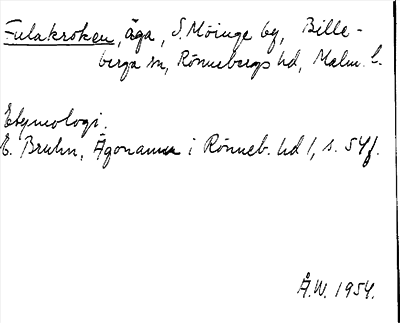 Fulakroken, äga, S. Möinge by, Bille-
berga sn, Rönnebergs hd, Malm. l.
Etymologi.
E. Bruhn, Ägonamn i Rönneb. hd 1, s. 54f.
Å.W. 1954.